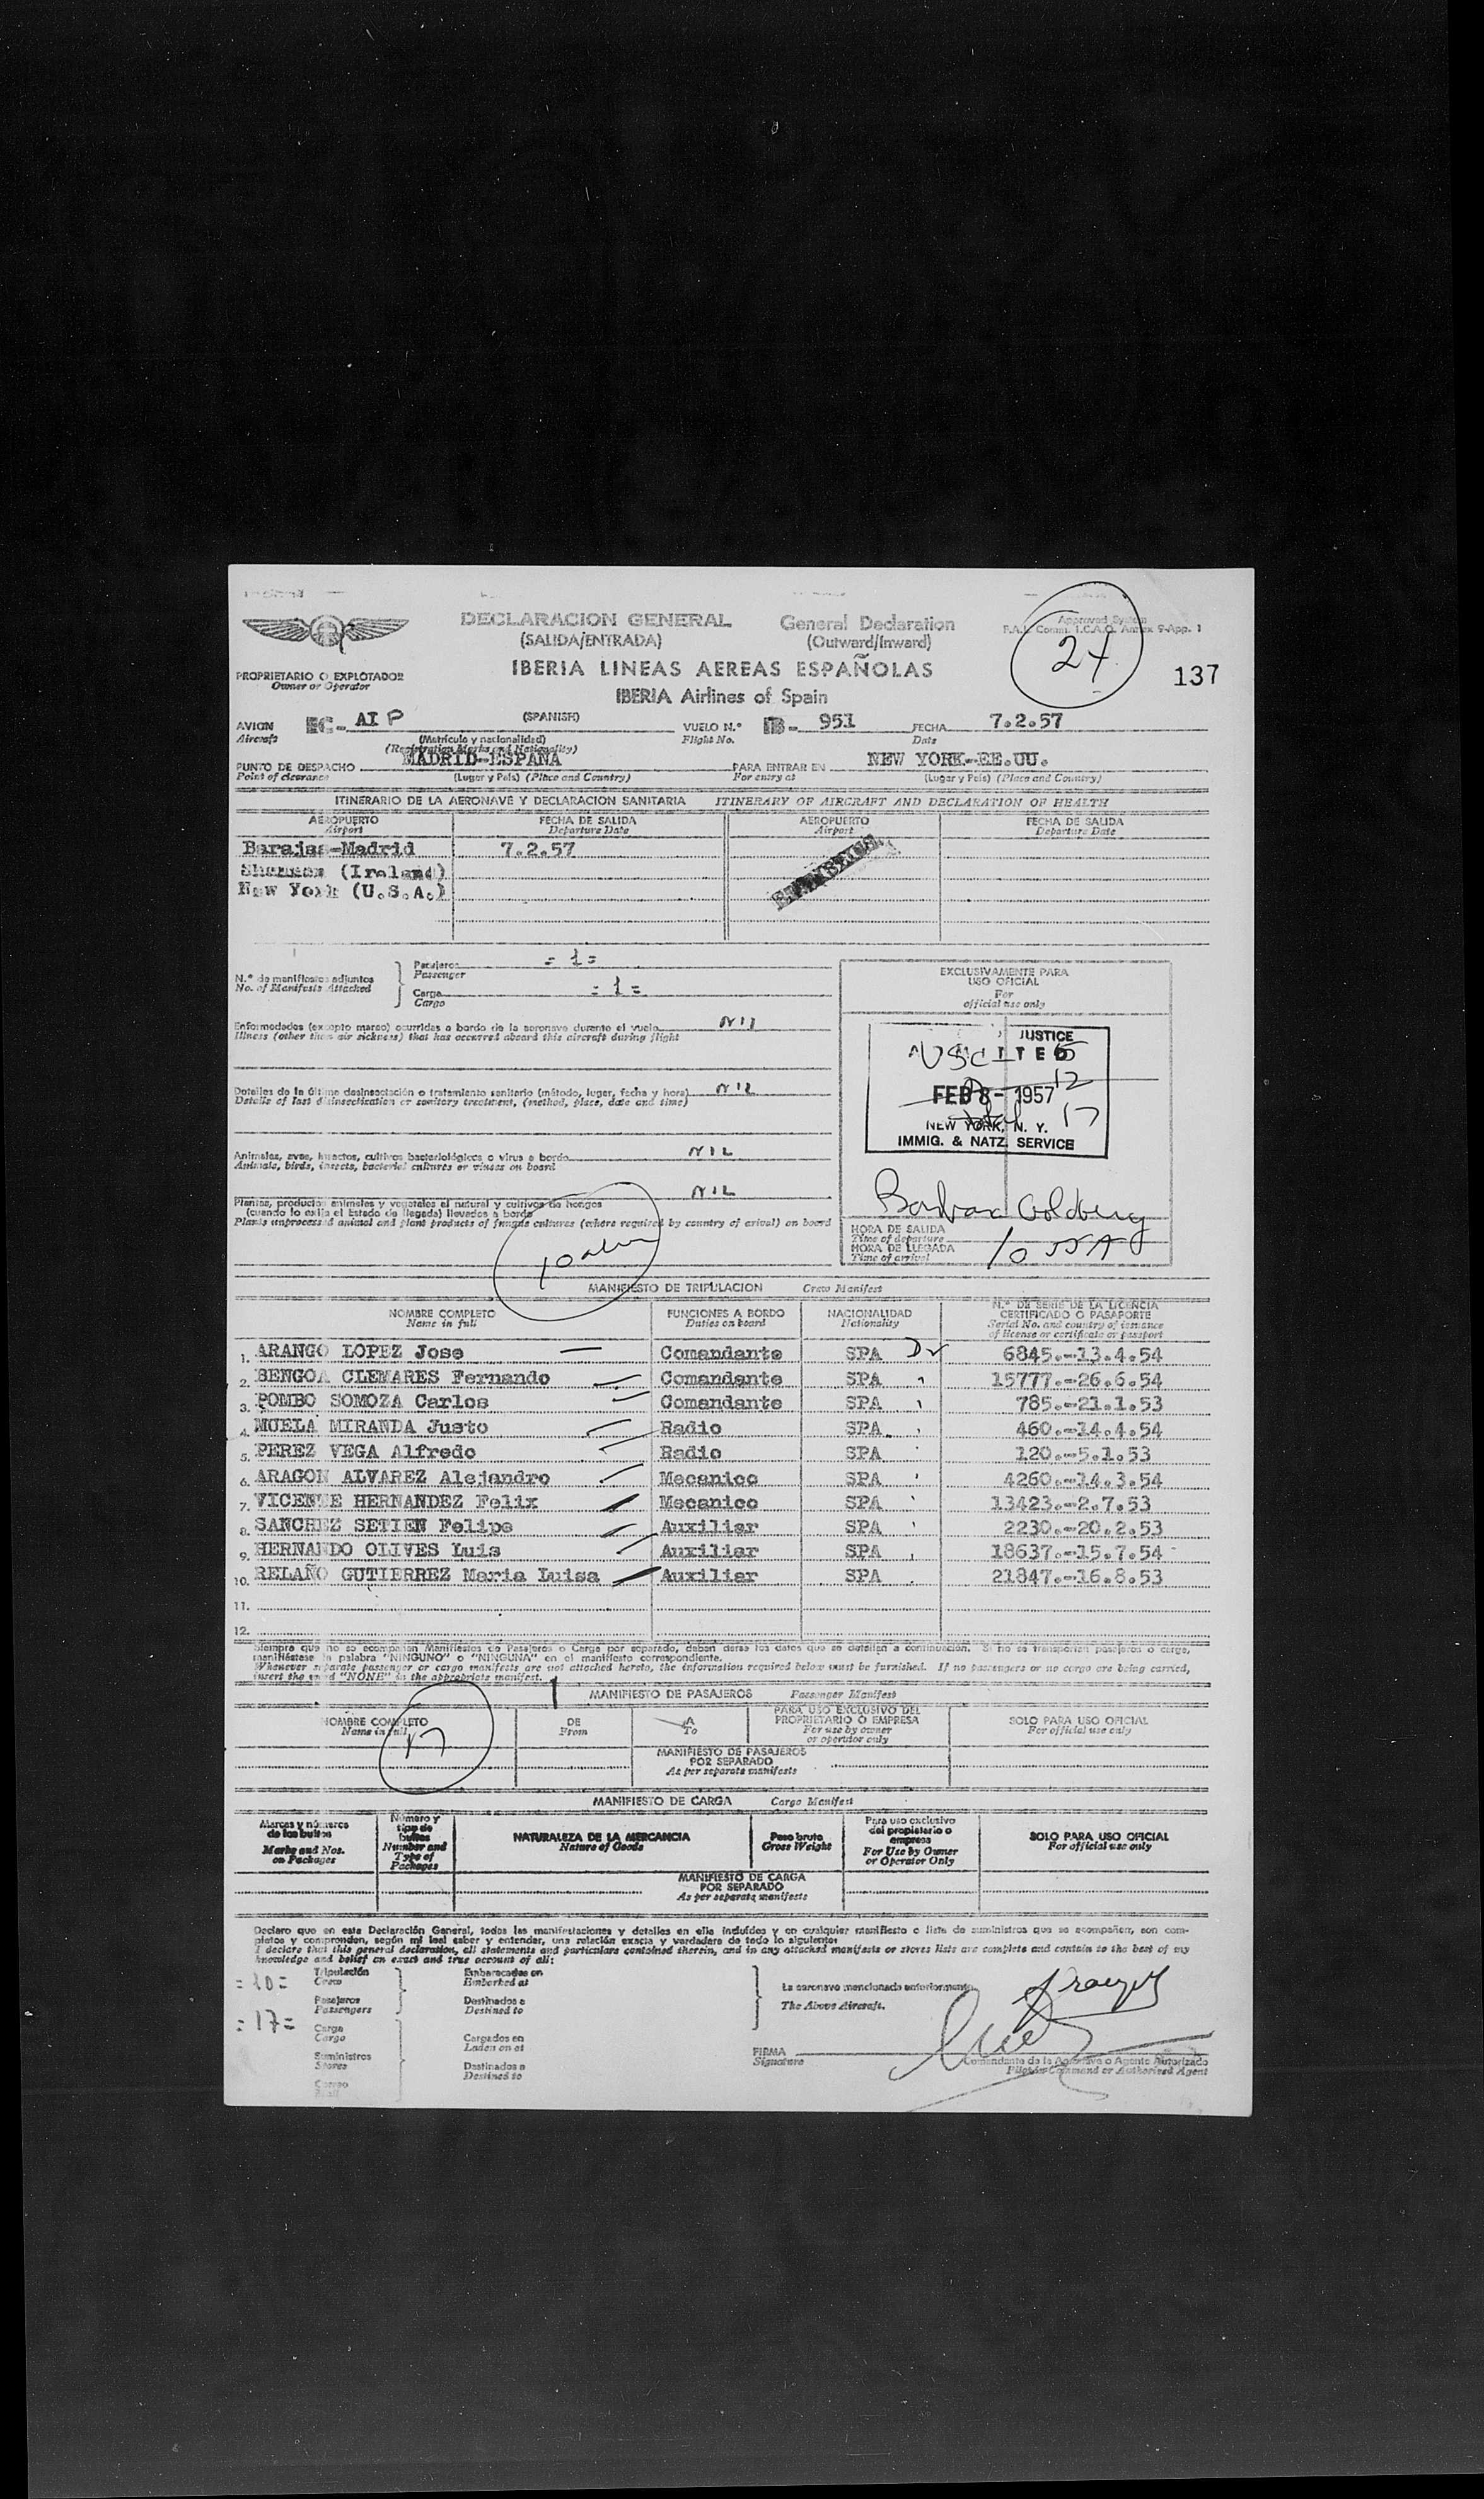 DECLARACION GENERAL
(SALIDA/ENTRADA)
General Declaration
(Outward/Inward)
Approved System
F.A.L. Comm. I.C.A.O. Annex 9-App. 1
24
137
IBERIA LINEAS AEREAS ESPAÑOLAS
IBERIA Airlines of Spain
PROPRIETARIO O EXPLOTADOR
Owner or Operator
AVION EC- AI P (SPANISH) VUELO N.° IB- 951 FECHA 7.2.57
Aircraft (Matrícula y nacionalidad) Flight No. Date
(Registration Marks and Nationality)
PUNTO DE DESPACHO MADRID-ESPAÑA PARA ENTRAR EN NEW YORK.-EE.UU.
Point of clearance (Lugar y País) (Place and Country) For entry at (Lugar y País) (Place and Country)
ITINERARIO DE LA AERONAVE Y DECLARACION SANITARIA ITINERARY OF AIRCRAFT AND DECLARATION OF HEALTH
AEROPUERTO FECHA DE SALIDA AEROPUERTO FECHA DE SALIDA
Airport Departure Date Airport Departure Date
Barajas-Madrid 7.2.57
Shannon (Ireland)
New York (U.S.A.)
N.° de manifiestos adjuntos
No. of Manifests Attached
Pasajeros = 1 =
Passenger
Carga = 1 =
Cargo
Enfermedades (excepto mareo) ocurridas a bordo de la aeronave durante el vuelo Nil
Illness (other than air sickness) that has occurred aboard this aircraft during flight
Detalles de la última desinsectación o tratamiento sanitario (método, lugar, fecha y hora) NIL
Details of last disinsectization or sanitary treatment, (method, place, date and time)
Animales, aves, insectos, cultivos bacteriológicos o virus a bordo NIL
Animals, birds, insects, bacterial cultures or viruses on board
NIL
Plantas, productos animales y vegetales al natural y cultivos de hongos
(cuando lo exija el Estado de llegada) llevados a bordo
Plants unprocessed animal and plant products of fungus cultures (where required by country of arival) on board
10 alien
EXCLUSIVAMENTE PARA
USO OFICIAL
For
official use only
JUSTICE
USC 5
12
FEB 8 - 1957
total 17
NEW YORK, N. Y.
IMMIG. & NATZ. SERVICE
Barbara Goldberg
HORA DE SALIDA
Time of departure
HORA DE LLEGADA 10 55A
Time of arrival
MANIFIESTO DE TRIPULACION Crew Manifest
NOMBRE COMPLETO FUNCIONES A BORDO NACIONALIDAD N.° DE SERIE DE LA LICENCIA
Name in full Duties on board Nationality CERTIFICADO O PASAPORTE
Serial No. and country of issuance
of license or certificate or passport
1. ARANGO LOPEZ Jose Comandante SPA 6845.-13.4.54
2. BENGOA CLEMARES Fernando Comandante SPA 15777.-26.6.54
3. POMBO SOMOZA Carlos Comandante SPA 785.-21.1.53
4. MUELA MIRANDA Justo Radio SPA 460.-14.4.54
5. PEREZ VEGA Alfredo Radio SPA 120.-5.1.53
6. ARAGON ALVAREZ Alejandro Mecanico SPA 4260.-14.3.54
7. VICENTE HERNANDEZ Felix Mecanico SPA 13423.-2.7.53
8. SANCHEZ SETIEN Felipe Auxiliar SPA 2230.-20.2.53
9. HERNANDO OLIVES Luis Auxiliar SPA 18637.-15.7.54
10. RELAÑO GUTIERREZ Maria Luisa Auxiliar SPA 21847.-16.8.53
11.
12.
Siempre que no se acompañen Manifiestos de Pasajeros o Carga por separado, deben darse los datos que se detallan a continuación. Si no se transportan pasajeros o carga,
manifiéstese la palabra "NINGUNO" o "NINGUNA" en el manifiesto correspondiente.
Whenever separate passenger or cargo manifests are not attached hereto, the information required below must be furnished. If no passengers or no cargo are being carried,
insert the word "NONE" in the appropriate manifest.
MANIFIESTO DE PASAJEROS Passenger Manifest
NOMBRE COMPLETO DE A PARA USO EXCLUSIVO DEL SOLO PARA USO OFICIAL
Name in full From To PROPRIETARIO O EMPRESA For official use only
For use by owner
or operator only
17
MANIFIESTO DE PASAJEROS
POR SEPARADO
As per separate manifests
MANIFIESTO DE CARGA Cargo Manifest
Marcas y números
de los bultos
Marks and Nos.
on Packages
Número y
tipo de
bultos
Number and
Type of
Packages
NATURALEZA DE LA MERCANCIA
Nature of Goods
Peso bruto
Gross Weight
Para uso exclusivo
del propietario o
empresa
For Use by Owner
or Operator Only
SOLO PARA USO OFICIAL
For official use only
MANIFIESTO DE CARGA
POR SEPARADO
As per separate manifests
Declaro que en esta Declaración General, todas las manifestaciones y detalles en ella incluídos y en cualquier manifiesto o lista de suministros que se acompañen, son com-
pletos y comprenden, según mi leal saber y entender, una relación exacta y verdadera de todo lo siguiente:
I declare that this general declaration, all statements and particulars contained therein, and in any attached manifests or stores lists are complete and contain to the best of my
knowledge and belief an exact and true account of all:
= 10 = Tripulación
Crew
Pasajeros
Passengers
= 17 =
Carga
Cargo
Suministros
Stores
Correo
Mail
Embarcados en
Embarked at
Destinados a
Destined to
Cargados en
Laden on at
Destinados a
Destined to
La aeronave mencionada anteriormente.
The Above Aircraft.
FIRMA
Signature
Comandante de la Aeronave o Agente Autorizado
Pilot in Command or Authorised Agent